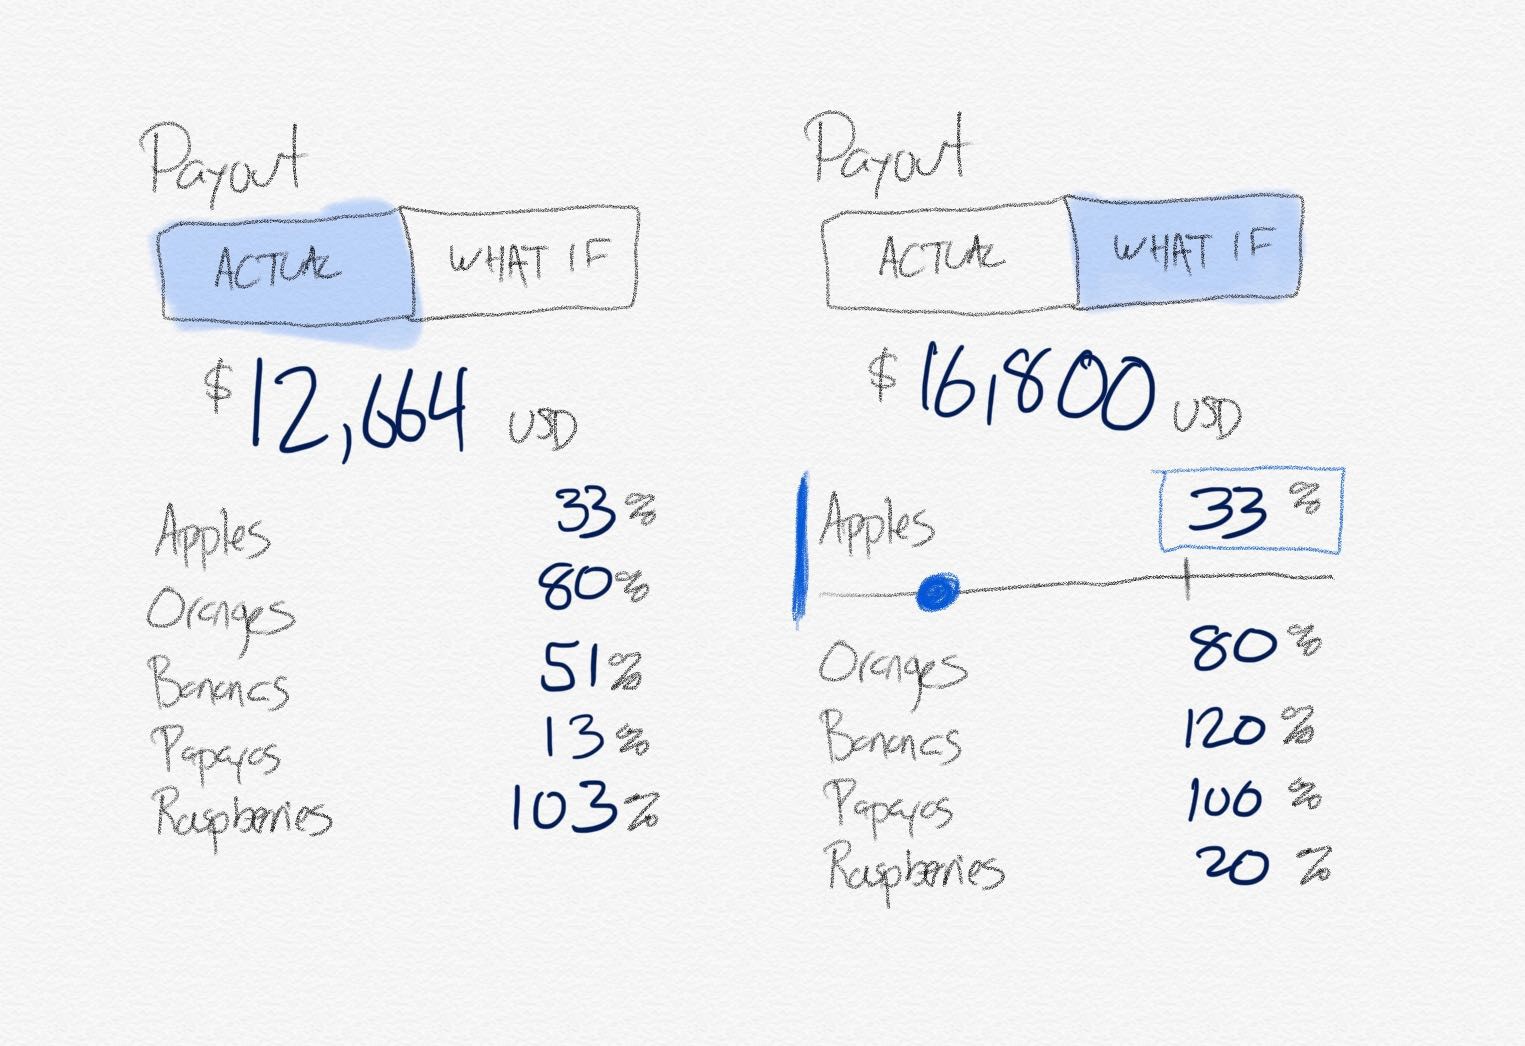 Payout
ACTUAL WHAT IF
$ 12,664 USD
Apples 33 %
Oranges 80 %
Bananas 51 %
Papayas 13 %
Raspberries 103 %
Payout
ACTUAL WHAT IF
$ 16,800 USD
Apples 33 %
Oranges 80 %
Bananas 120 %
Papayas 100 %
Raspberries 20 %